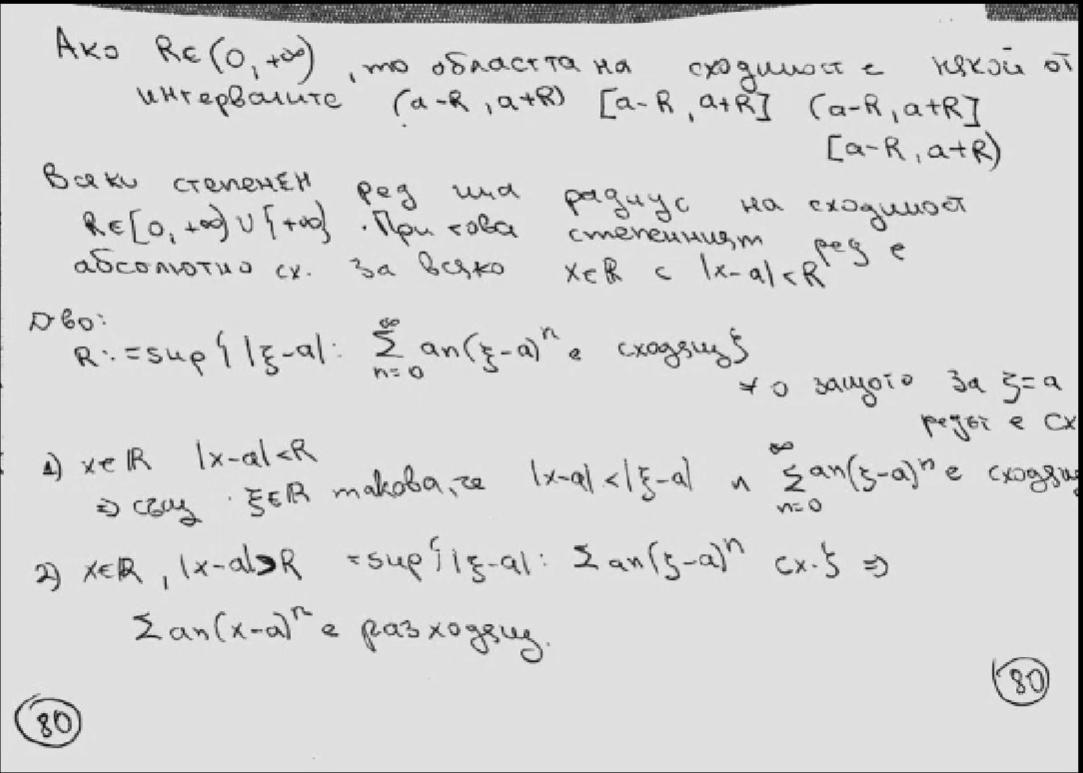 Ако R∈(0,+∞), то областта на сходимост е някой от
интервалите (a-R, a+R) [a-R, a+R] (a-R, a+R]
[a-R, a+R)
Всяки степенен ред има радиус на сходимост
R∈[0,+∞)∪{+∞}. При това степенният ред е
абсолютно сх. за всяко x∈R с |x-a|<R
D-во:
R:=sup{|ξ-a|: ∑_{n=0}^{∞} an(ξ-a)^n е сходящ}
≠0 защото за ξ=a
редът е сх
1) x∈ℝ |x-a|<R
⇒ същ. ξ∈ℝ такова, че |x-a|<|ξ-a| и ∑_{n=0}^{∞} an(ξ-a)^n е сходящ
2) x∈ℝ, |x-a|>R =sup{|ξ-a|: ∑an(ξ-a)^n сх.} ⇒
∑an(x-a)^n е разходящ.
80
80